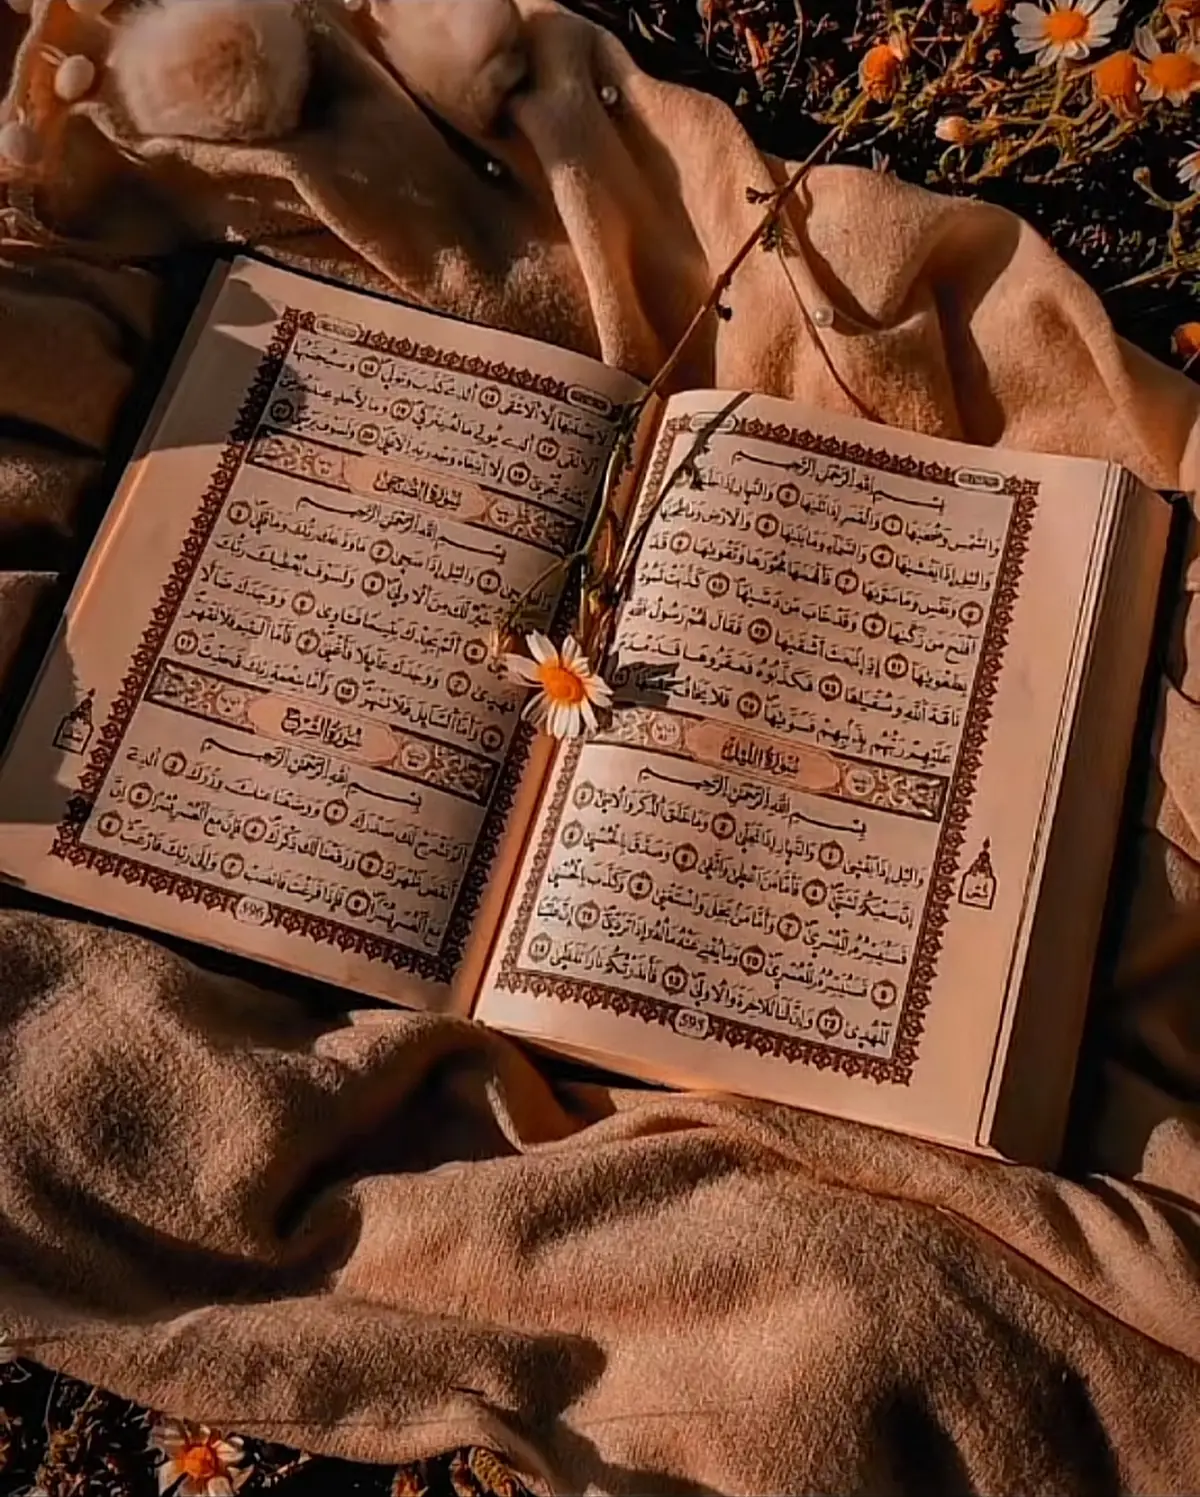 بِسْمِ اللَّهِ الرَّحْمَٰنِ الرَّحِيمِ
وَالشَّمْسِ وَضُحَىٰهَا ١ وَالْقَمَرِ إِذَا تَلَىٰهَا ٢ وَالنَّهَارِ إِذَا جَلَّىٰهَا
وَالَّيْلِ إِذَا يَغْشَىٰهَا ٤ وَالسَّمَاءِ وَمَا بَنَىٰهَا ٥ وَالْأَرْضِ وَمَا طَحَىٰهَا
٦ وَنَفْسٍ وَمَا سَوَّىٰهَا ٧ فَأَلْهَمَهَا فُجُورَهَا وَتَقْوَىٰهَا ٨ قَدْ
أَفْلَحَ مَن زَكَّىٰهَا ٩ وَقَدْ خَابَ مَن دَسَّىٰهَا ١٠ كَذَّبَتْ ثَمُودُ
بِطَغْوَىٰهَا ١١ إِذِ انبَعَثَ أَشْقَىٰهَا ١٢ فَقَالَ لَهُمْ رَسُولُ اللَّهِ
نَاقَةَ اللَّهِ وَسُقْيَٰهَا ١٣ فَكَذَّبُوهُ فَعَقَرُوهَا فَدَمْدَمَ
عَلَيْهِمْ رَبُّهُم بِذَنبِهِمْ فَسَوَّىٰهَا ١٤ فَلَا يَخَافُ
سُورَةُ اللَّيْلِ
بِسْمِ اللَّهِ الرَّحْمَٰنِ الرَّحِيمِ
وَالَّيْلِ إِذَا يَغْشَىٰ ١ وَالنَّهَارِ إِذَا تَجَلَّىٰ ٢ وَمَا خَلَقَ الذَّكَرَ وَالْأُنثَىٰ ٣
إِنَّ سَعْيَكُمْ لَشَتَّىٰ ٤ فَأَمَّا مَنْ أَعْطَىٰ وَاتَّقَىٰ ٥ وَصَدَّقَ بِالْحُسْنَىٰ ٦
فَسَنُيَسِّرُهُ لِلْيُسْرَىٰ ٧ وَأَمَّا مَن بَخِلَ وَاسْتَغْنَىٰ ٨ وَكَذَّبَ بِالْحُسْنَىٰ
٩ فَسَنُيَسِّرُهُ لِلْعُسْرَىٰ ١٠ وَمَا يُغْنِي عَنْهُ مَالُهُ إِذَا تَرَدَّىٰ ١١ إِنَّ عَلَيْنَا
لَلْهُدَىٰ ١٢ وَإِنَّ لَنَا لَلْآخِرَةَ وَالْأُولَىٰ ١٣ فَأَنذَرْتُكُمْ نَارًا تَلَظَّىٰ ١٤
595
لَا يَصْلَىٰهَا إِلَّا الْأَشْقَى ١٥ الَّذِي كَذَّبَ وَتَوَلَّىٰ ١٦ وَسَيُجَنَّبُهَا
الْأَتْقَى ١٧ الَّذِي يُؤْتِي مَالَهُ يَتَزَكَّىٰ ١٨ وَمَا لِأَحَدٍ عِندَهُ مِن
نِّعْمَةٍ تُجْزَىٰ ١٩ إِلَّا ابْتِغَاءَ وَجْهِ رَبِّهِ الْأَعْلَىٰ ٢٠ وَلَسَوْفَ يَرْضَىٰ ٢١
سُورَةُ الضُّحَىٰ
بِسْمِ اللَّهِ الرَّحْمَٰنِ الرَّحِيمِ
وَالضُّحَىٰ ١ وَالَّيْلِ إِذَا سَجَىٰ ٢ مَا وَدَّعَكَ رَبُّكَ وَمَا قَلَىٰ ٣
خَيْرٌ لَّكَ مِنَ الْأُولَىٰ ٤ وَلَسَوْفَ يُعْطِيكَ رَبُّكَ
٥ أَلَمْ يَجِدْكَ يَتِيمًا فَآوَىٰ ٦ وَوَجَدَكَ ضَالًّا
فَهَدَىٰ ٧ وَوَجَدَكَ عَائِلًا فَأَغْنَىٰ ٨ فَأَمَّا الْيَتِيمَ فَلَا تَقْهَرْ
٩ وَأَمَّا السَّائِلَ فَلَا تَنْهَرْ ١٠ وَأَمَّا بِنِعْمَةِ رَبِّكَ فَحَدِّثْ ١١
سُورَةُ الشَّرْحِ
بِسْمِ اللَّهِ الرَّحْمَٰنِ الرَّحِيمِ
أَلَمْ نَشْرَحْ لَكَ صَدْرَكَ ١ وَوَضَعْنَا عَنكَ وِزْرَكَ ٢ الَّذِي
أَنقَضَ ظَهْرَكَ ٣ وَرَفَعْنَا لَكَ ذِكْرَكَ ٤ فَإِنَّ مَعَ الْعُسْرِ يُسْرًا ٥ إِنَّ
مَعَ الْعُسْرِ يُسْرًا ٦ فَإِذَا فَرَغْتَ فَانصَبْ ٧ وَإِلَىٰ رَبِّكَ فَارْغَب ٨
596